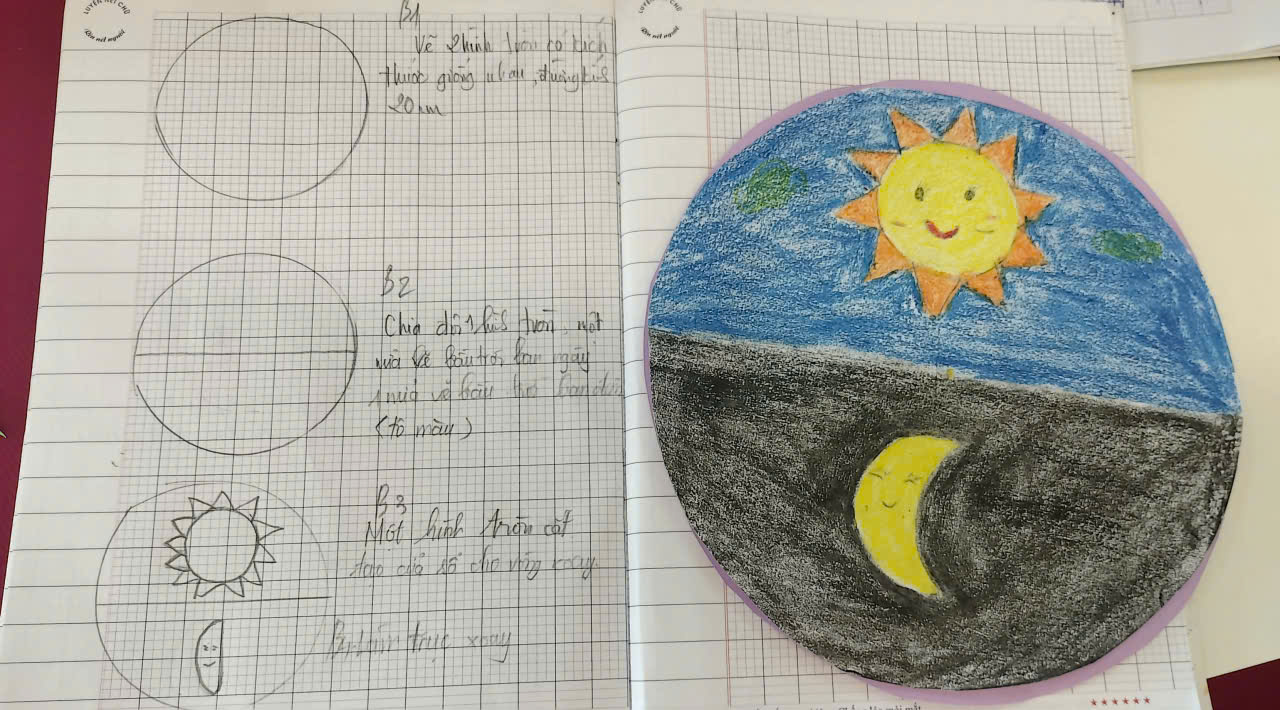 LUYỆN NÉT CHỮ
Rèn nết người
B1
Vẽ 2 hình tròn có kích
thước giống nhau, đường kính
20 cm
B2
Chia đôi 1 hình tròn, một
nửa vẽ bầu trời ban ngày
1 nửa vẽ bầu trời ban đêm
(tô màu)
B3
Một hình tròn cắt
tạo cửa sổ cho vòng xoay.
B4 Làm trục xoay
LUYỆN NÉT CHỮ
Rèn nết người